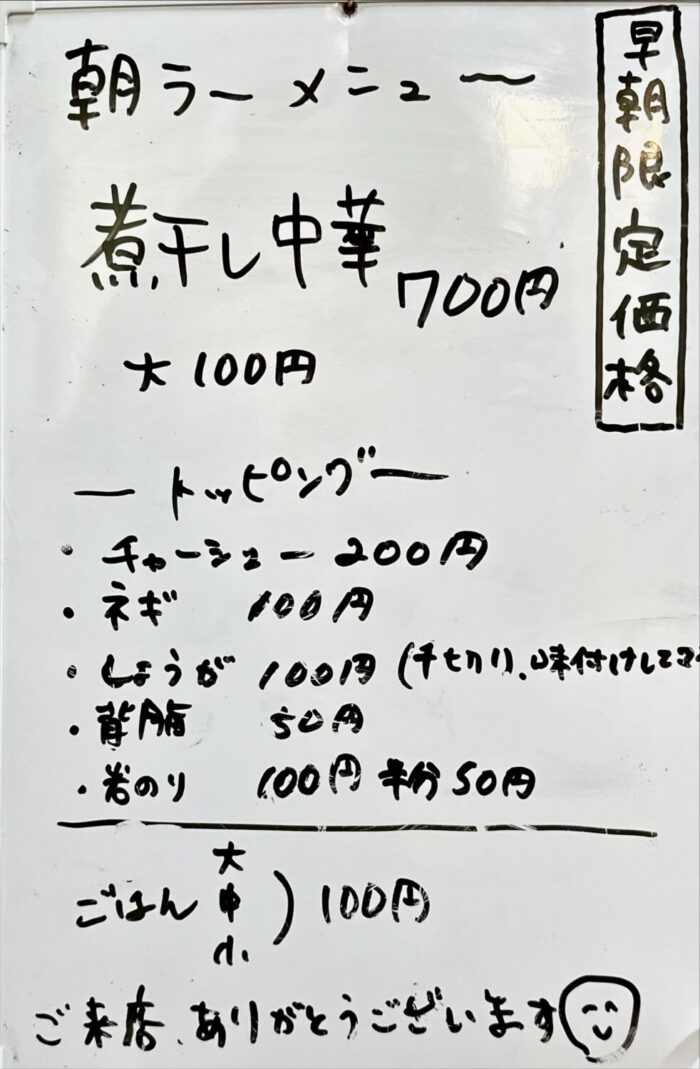 朝ラーメニュ〜
早朝限定価格
煮干し中華 700円
大 100円
― トッピング ―
・チャーシュー 200円
・ネギ 100円
・しょうが 100円 (千切り、味付けしてマ
・背脂 50円
・岩のり 100円 半分 50円
ごはん 大 中 小 ) 100円
ご来店、ありがとうございます